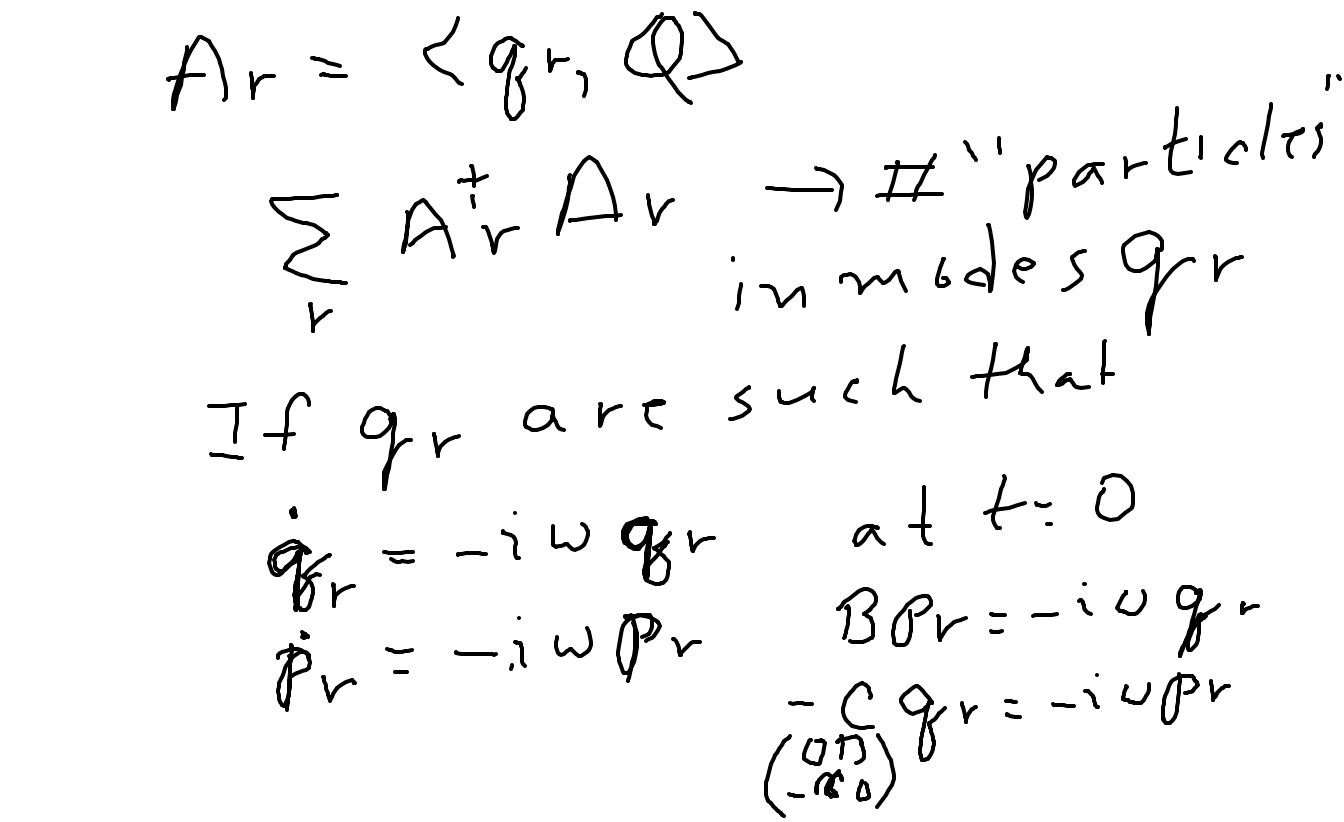 Ar = <qr, Q>
∑ A†r Ar → # "particles"
r
in modes qr
If qr are such that
at t=0
q̇r = -iω qr
BPr = -iω qr
ṗr = -iω pr
-C qr = -iω pr
(0 B
-C 0)